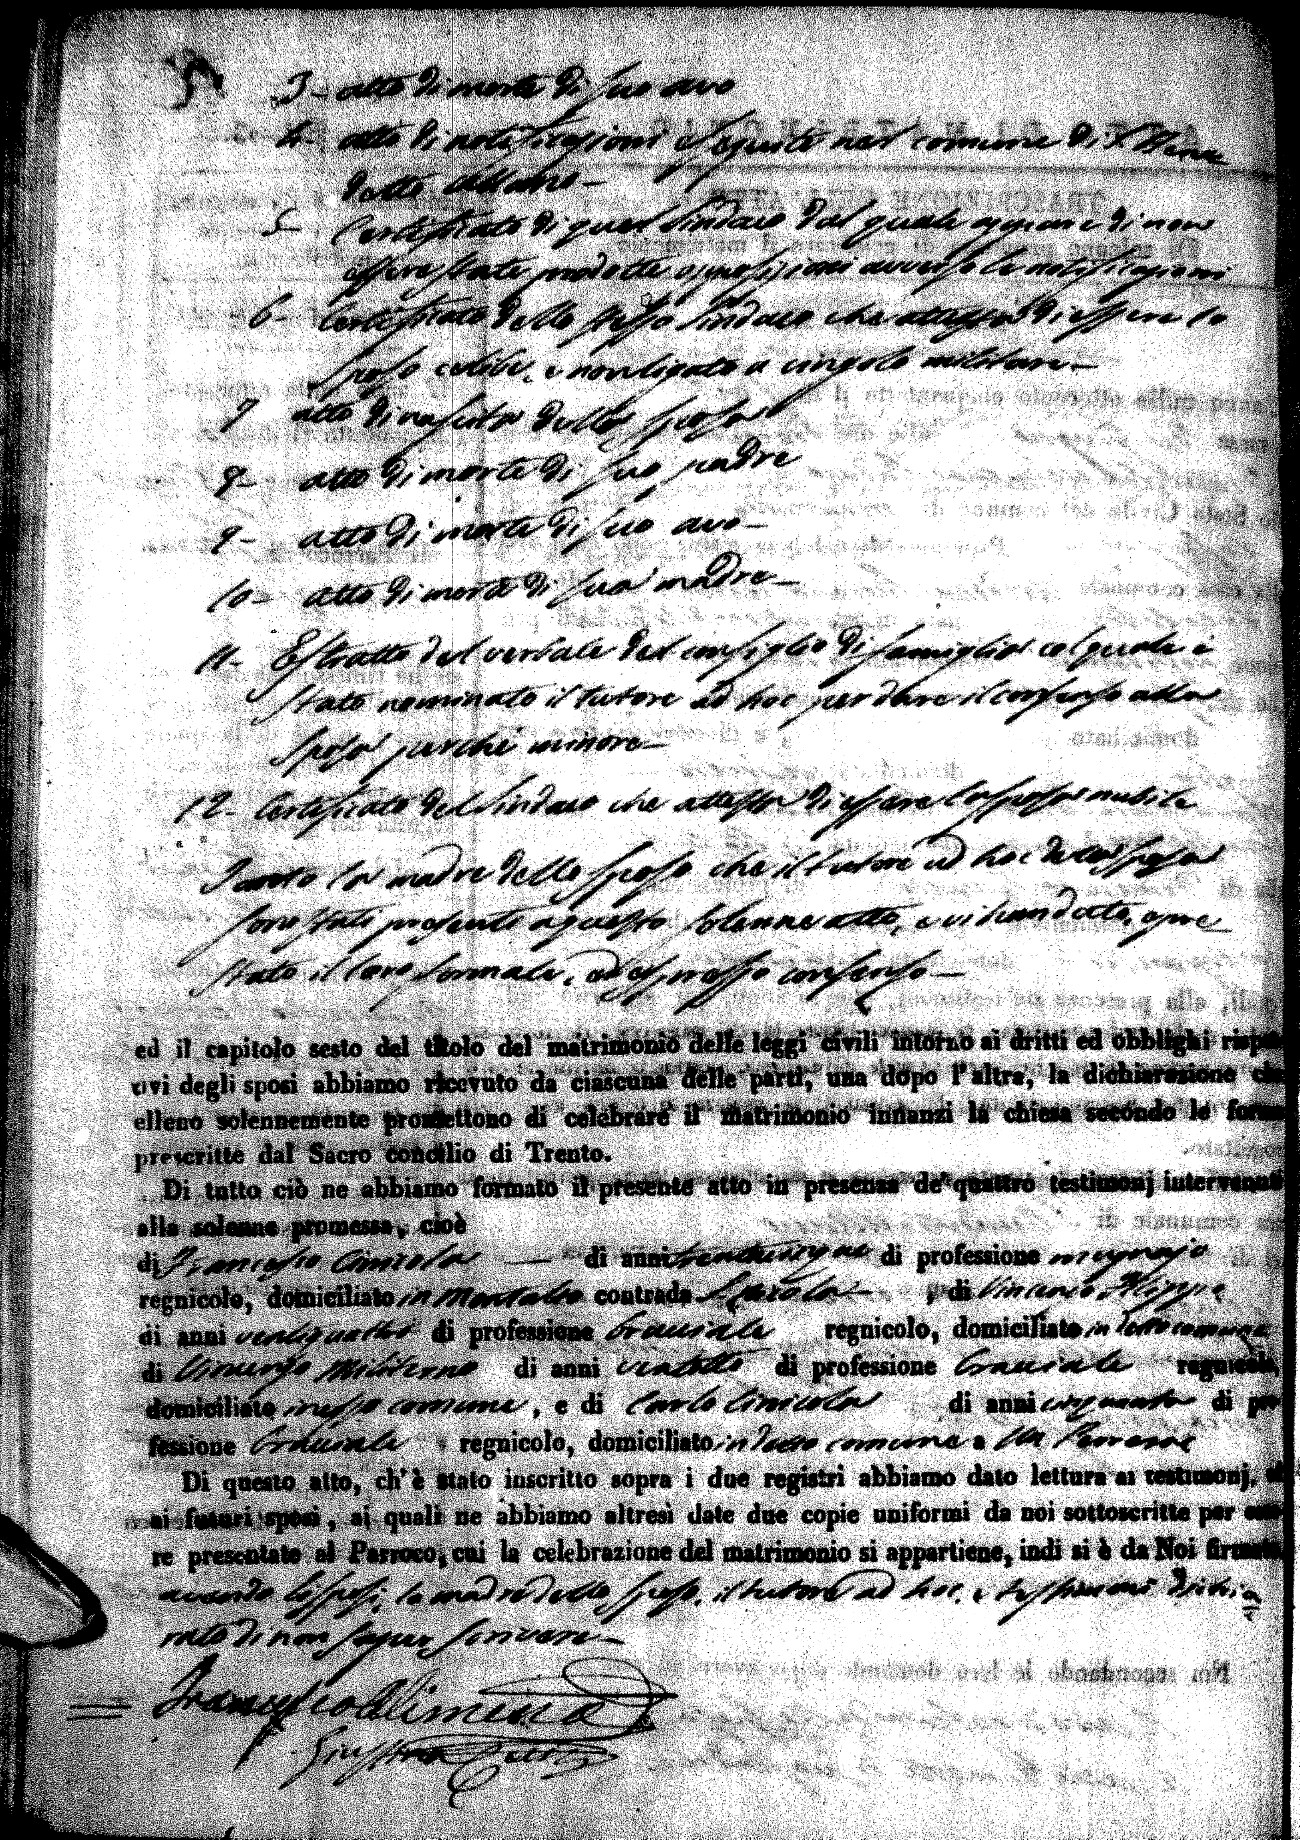 3- atto di morte di suo avo
4- atto di notificazioni eseguite nel comune di S. Bene
detto Ullano-
5- Certificato di quel Sindaco dal quale appare di non
essere state prodotte opposizioni avverso le notificazioni
6- Certificato dello stesso Sindaco che attesta di essere lo
sposo celibe, e non ligato a cingolo militare-
7 atto di nascita della sposa
8- atto di morte di suo padre
9- atto di morte di suo avo-
10- atto di morte di sua madre-
11- Estratto del verbale del consiglio di famiglia col quale è
stato nominato il tutore ad hoc per dare il consenso alla
sposa perche minore-
12- Certificato del Sindaco che attesta di essere la sposa nubile
Tanto la madre dello sposo che il tutore ad hoc della sposa
sono stati presenti a questo solenne atto, e vi han dato, e pre
stato il loro formale, ed espresso consenso-
ed il capitolo sesto del titolo del matrimonio delle leggi civili intorno ai dritti ed obblighi rispet
tivi degli sposi abbiamo ricevuto da ciascuna delle parti, una dopo l'altra, la dichiarazione che
elleno solennemente promettono di celebrare il matrimonio innanzi la chiesa secondo le forme
prescritte dal Sacro concilio di Trento.
Di tutto ciò ne abbiamo formato il presente atto in presenza de' quattro testimonj intervenuti
alla solenne promessa, cioè
di Francesco Cinicola di anni trentacinque di professione mugnajo
regnicolo, domiciliato in Montalto contrada , di Vincenzo Filippo
di anni ventiquattro di professione bracciale regnicolo, domiciliato in detto comune
di Vincenzo di anni ventotto di professione bracciale regnicolo,
domiciliato in esso comune, e di Carlo Cinicola di anni cinquanta di pro
fessione bracciale regnicolo, domiciliato in detto comune
Di questo atto, ch'è stato inscritto sopra i due registri abbiamo dato lettura ai testimonj, ed
ai futuri sposi, ai quali ne abbiamo altresì date due copie uniformi da noi sottoscritte per esse
re presentate al Parroco, cui la celebrazione del matrimonio si appartiene, indi si è da Noi firmato
avendo li sposi, la madre dello sposo, il tutore ad hoc, e testimoni dichia
rato di non saper scrivere-
Francesco Alimena